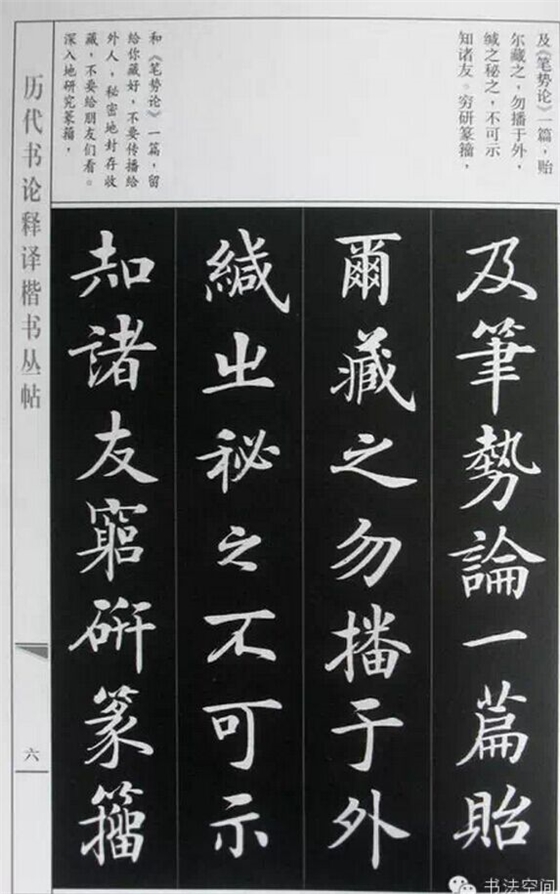 及《笔势论》一篇，贻
尔藏之，勿播于外，
缄之秘之，不可示
知诸友。穷研篆籀，
和《笔势论》一篇，留
给你藏好，不要传播给
外人，秘密地封存收
藏，不要给朋友们看。
深入地研究篆籀，
及筆勢論一篇貽
爾藏之勿播于外
緘㞢秘之不可示
知諸友窮研篆籀
历代书论释译楷书丛帖
六
书法空间